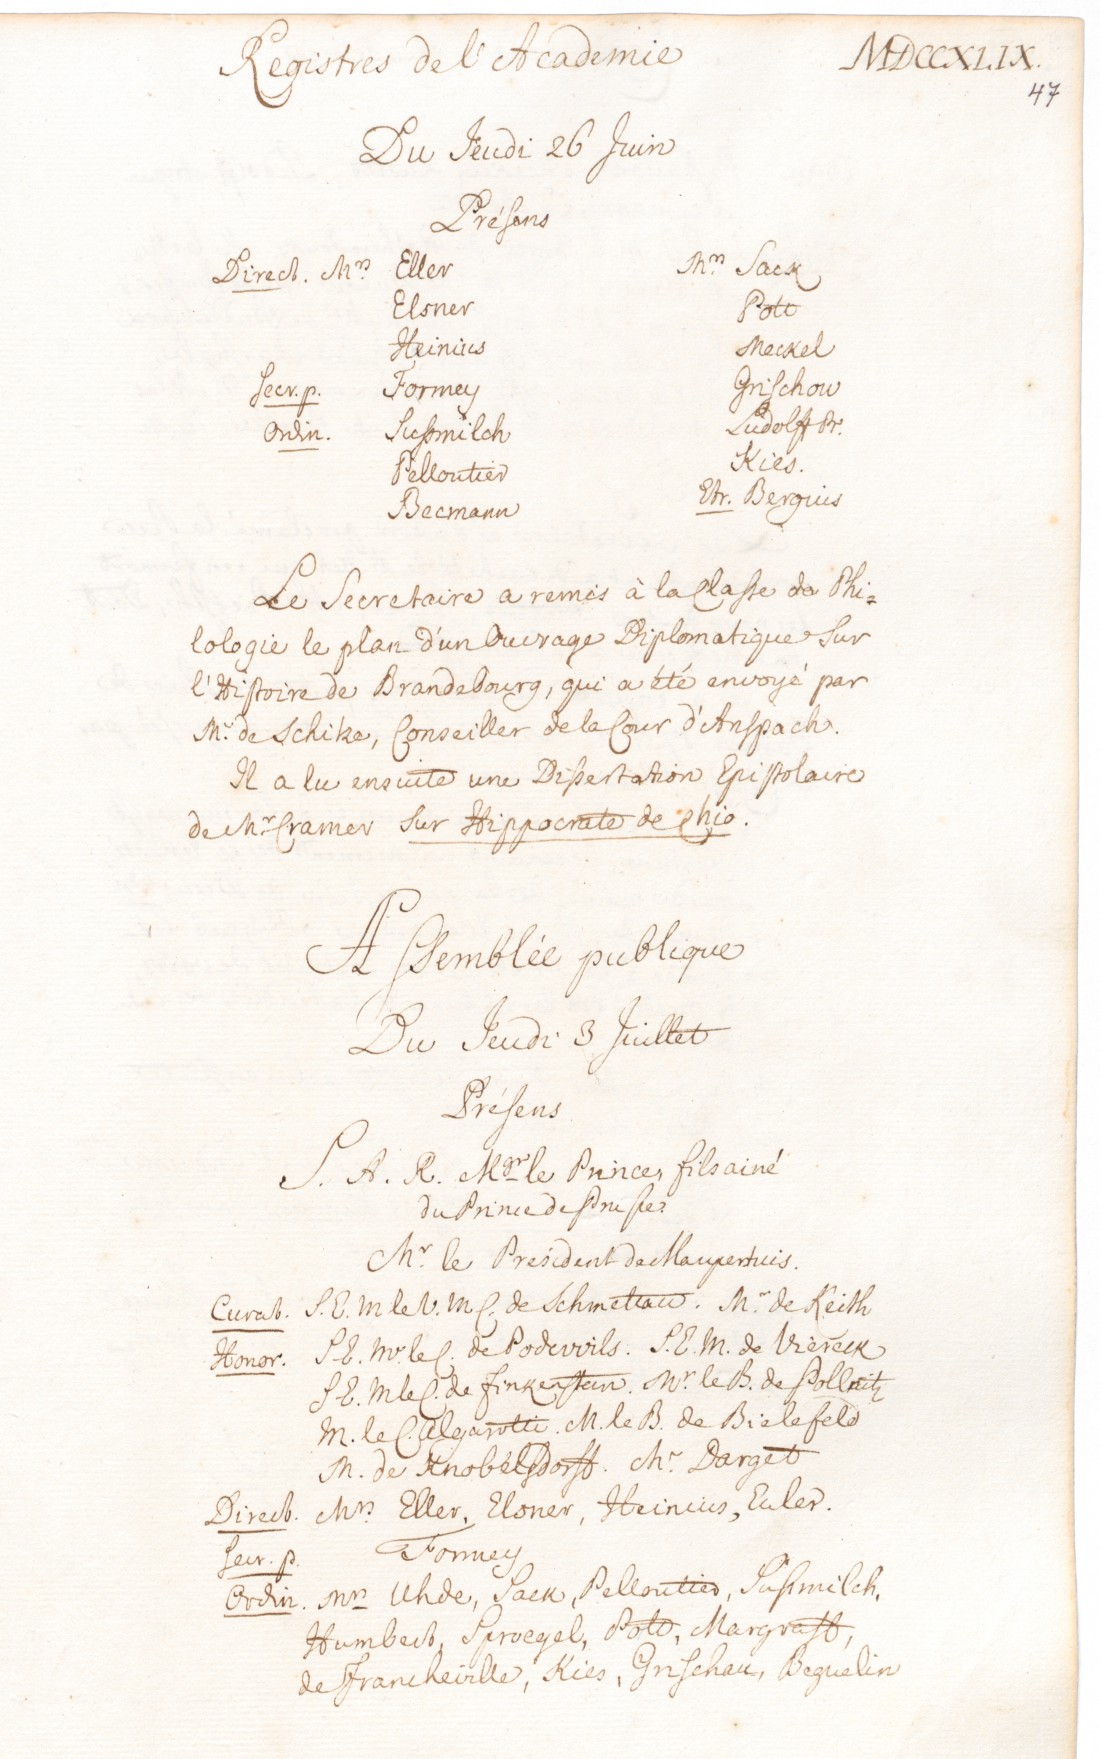 Registres de l'Academie MDCCXLIX.
47
Du Jeudi 26 Juin
Présens
Direct. Mrs Eller Mrs Sack
Elsner Pott
Heinius Meckel
Secr. p. Formey Grischow
Ordin. Sussmilch Ludolff Pr.
Pelloutier Kies.
Becmann Etr. Bergius
Le Secretaire a remis à la Classe de Phi=
lologie le plan d'un Ouvrage Diplomatique sur
l'Histoire de Brandebourg, qui a été envoyé par
Mr. de Schike, Conseiller de la Cour d'Anspach.
Il a lu ensuite une Dissertation Epistolaire
de Mr Cramer sur Hippocrate de Chio.
Assemblée publique
Du Jeudi 3 Juillet
Présens
S. A. R. Mgr le Prince, fils ainé
du Prince de Prusse
Mr le President de Maupertuis.
Curat. S. E. M le V. M C. de Schmettau. Mr de Keith
Honor. S. E. Mr le C. de Podewils. S. E. M. de Viereck
S. E. M le C. de Finkenstein. Mr le B. de Pollnitz
M. le C. Algarotti. M. le B. de Bielefeld
M. de Knobelsdorff. Mr Darget
Direct. Mrs Eller, Elsner, Heinius, Euler.
Secr. p. Formey
Ordin. Mrs Uhde, Sack, Pelloutier, Sussmilch,
Humbert, Sproegel, Pott, Margraff,
de Francheville, Kies, Grischau, Beguelin